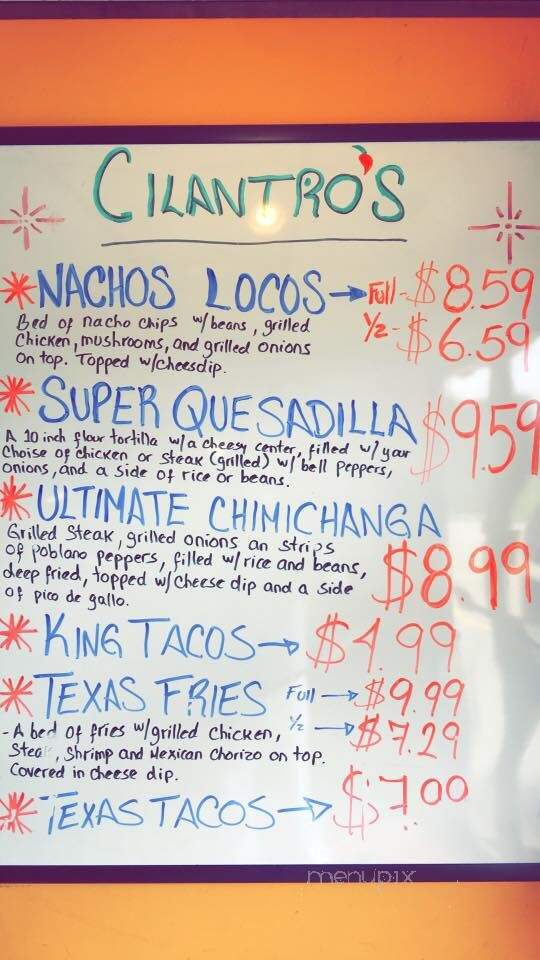 CILANTRO'S
NACHOS LOCOS → Full - $8.59
½ - $6.59
Bed of nacho chips w/beans, grilled
Chicken, mushrooms, and grilled onions
on top. Topped w/cheesdip.
SUPER QUESADILLA $9.59
A 10 inch flour tortilla w/a cheesy center, filled w/your
Choise of chicken or steak (grilled) w/ bell peppers,
onions, and a side of rice or beans.
ULTIMATE CHIMICHANGA
Grilled Steak, grilled onions an strips
of poblano peppers, filled w/rice and beans,
deep fried, topped w/cheese dip and a side
of pico de gallo.
$8.99
KING TACOS → $4.99
TEXAS FRIES Full → $9.99
½ → $7.29
- A bed of fries w/grilled chicken,
Steak, Shrimp and Mexican Chorizo on top.
Covered in cheese dip.
TEXAS TACOS → $7.00
menupix